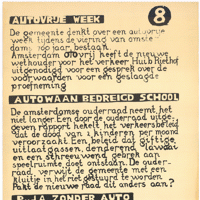 AUTOVRIJE WEEK
8
De gemeente denkt over een autovrije
week tijdens de viering van amster-
dam 700 jaar bestaan.
Amsterdam autovrij heeft de nieuwe
wethouder voor het verkeer Huib Riethof
uitgenodigd voor een gesprek over de
voorwaarden voor een geslaagde
proefneming
AUTOWAAN BEDREIGD SCHOOL
De amsterdamse ouderraad neemt het
niet langer. Een door de ouderraad uitge-
geven rapport hekelt het verkeersbeleid
dat de dood van 2 kinderen per maand
veroorzaakt. Een beleid dat giftige
uitlaatgassen, denderend lawaai
en een schreeuwend gebrek aan
speelruimte doet ontstaan. De ouder-
raad, verwijt de gemeente met een
kluitje in het riet gestuurd te worden.
Pakt de nieuwe raad dit anders aan?
ZONDER AUTO